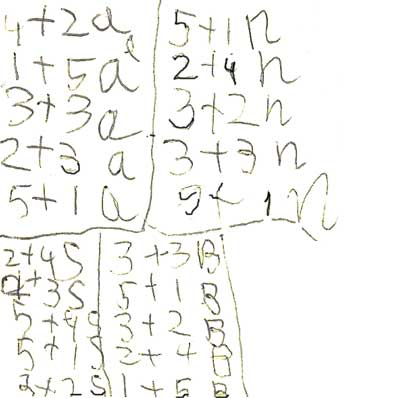 4+2a
1+5a
3+3a
2+3a
5+1a
5+1n
2+4n
3+2n
3+3n
2+4S
2+3S
5+4S
5+1S
3+2S
3+3B
5+1B
3+2B
2+4B
1+5B